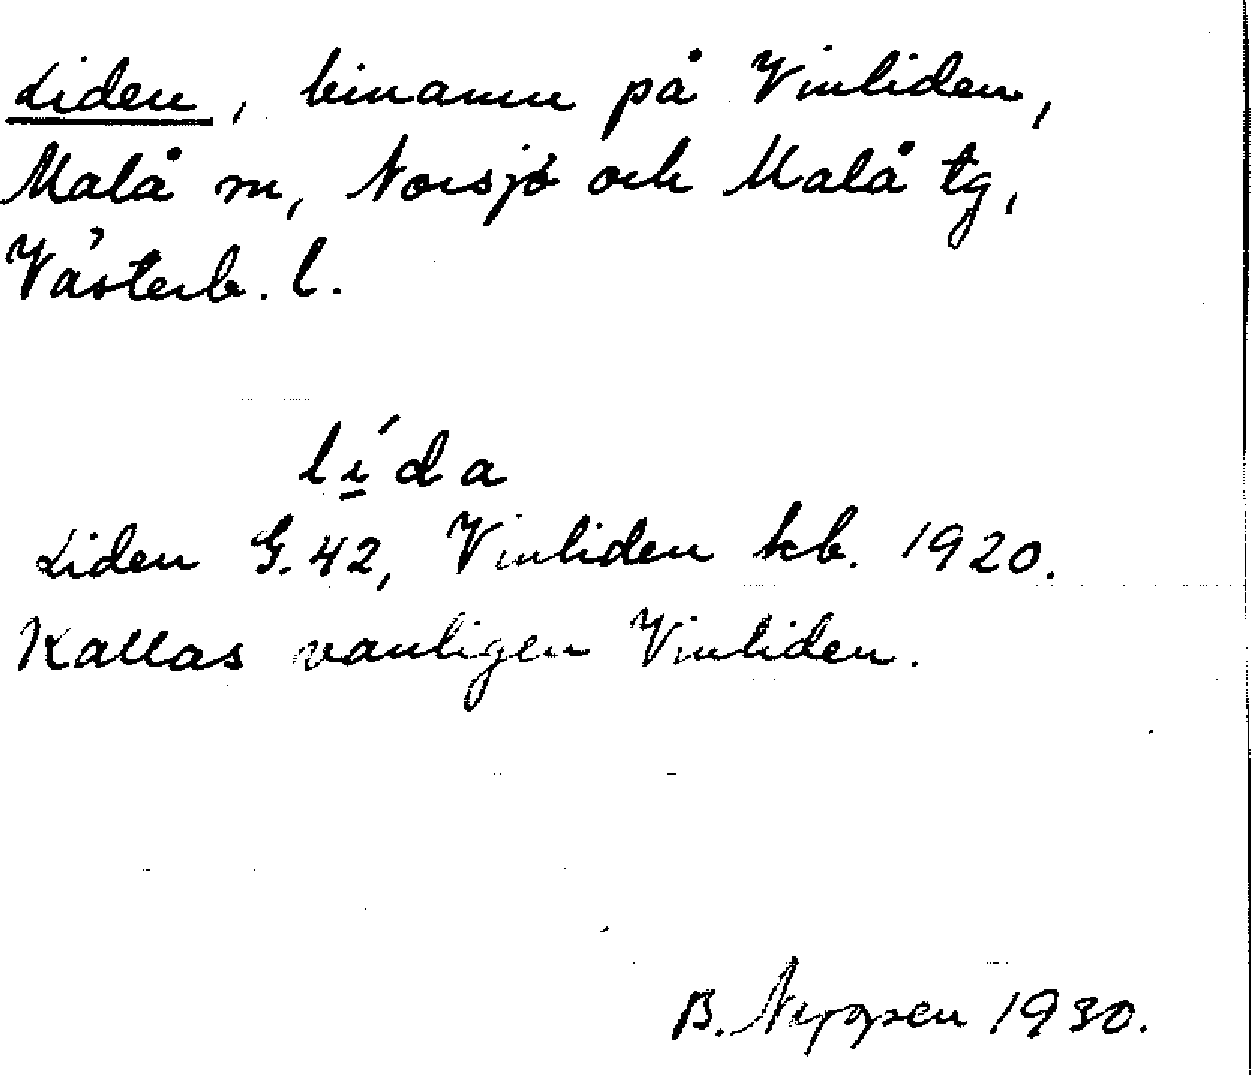 Liden, binamn på Vinliden,
Malå sn, Norsjö och Malå tg,
Västerb. l.
lí̱da
Liden G. 42, Vinliden kb. 1920.
Kallas vanligen Vinliden.
B. 1930.